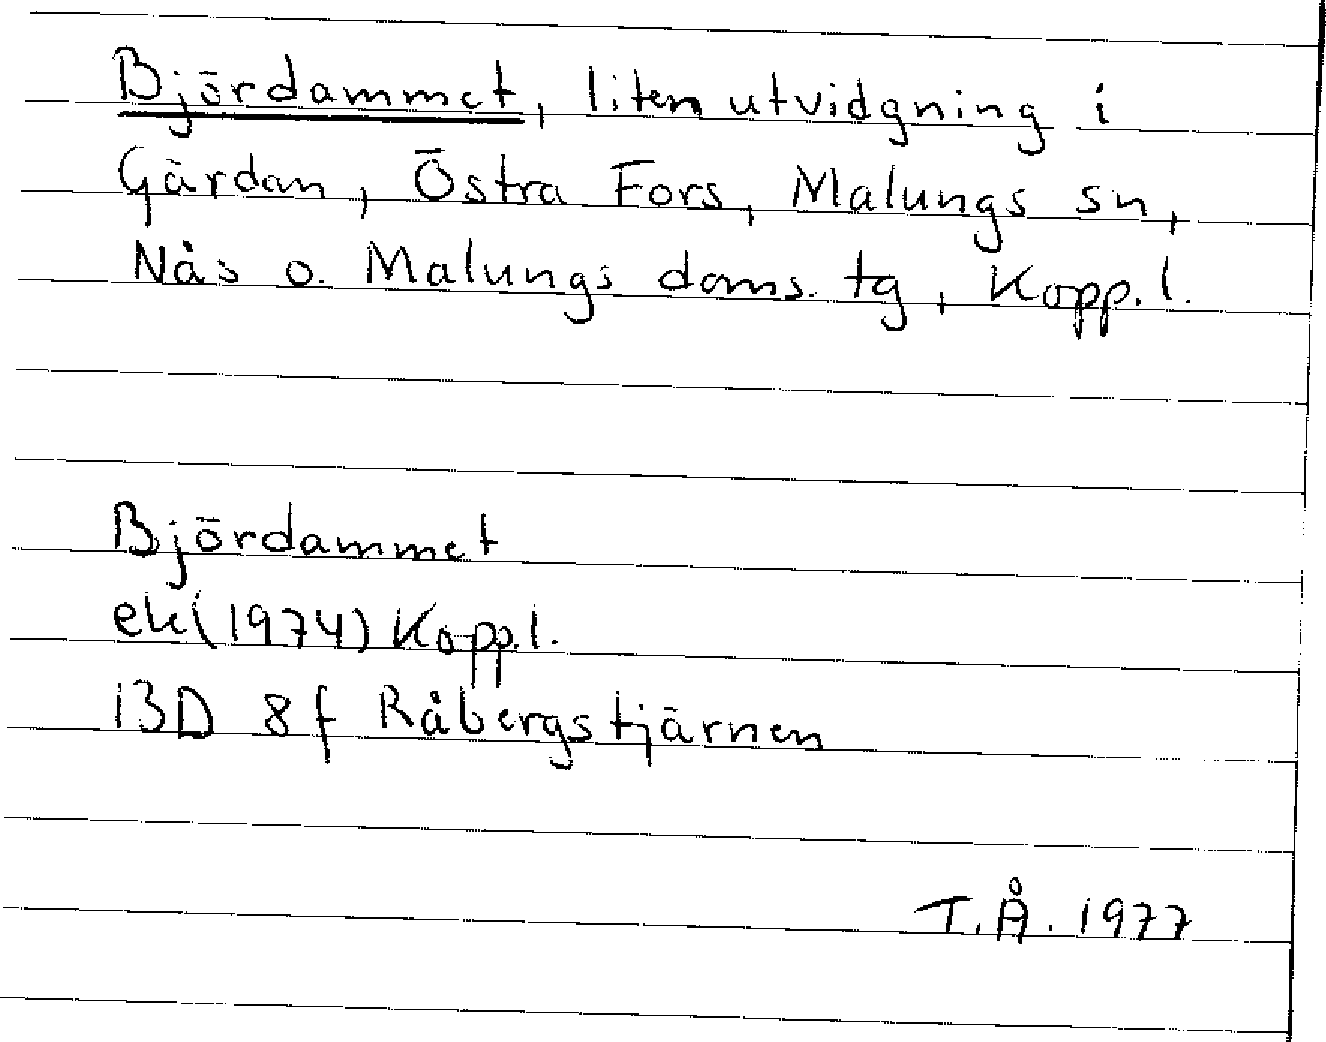 Björdammet, liten utvidgning i
Gärdan, Östra Fors, Malungs sn,
Nås o. Malungs doms. tg, Kopp. l.
Björdammet
ek (1974) Kopp. l.
13D 8f Råbergstjärnen
T.Å. 1977